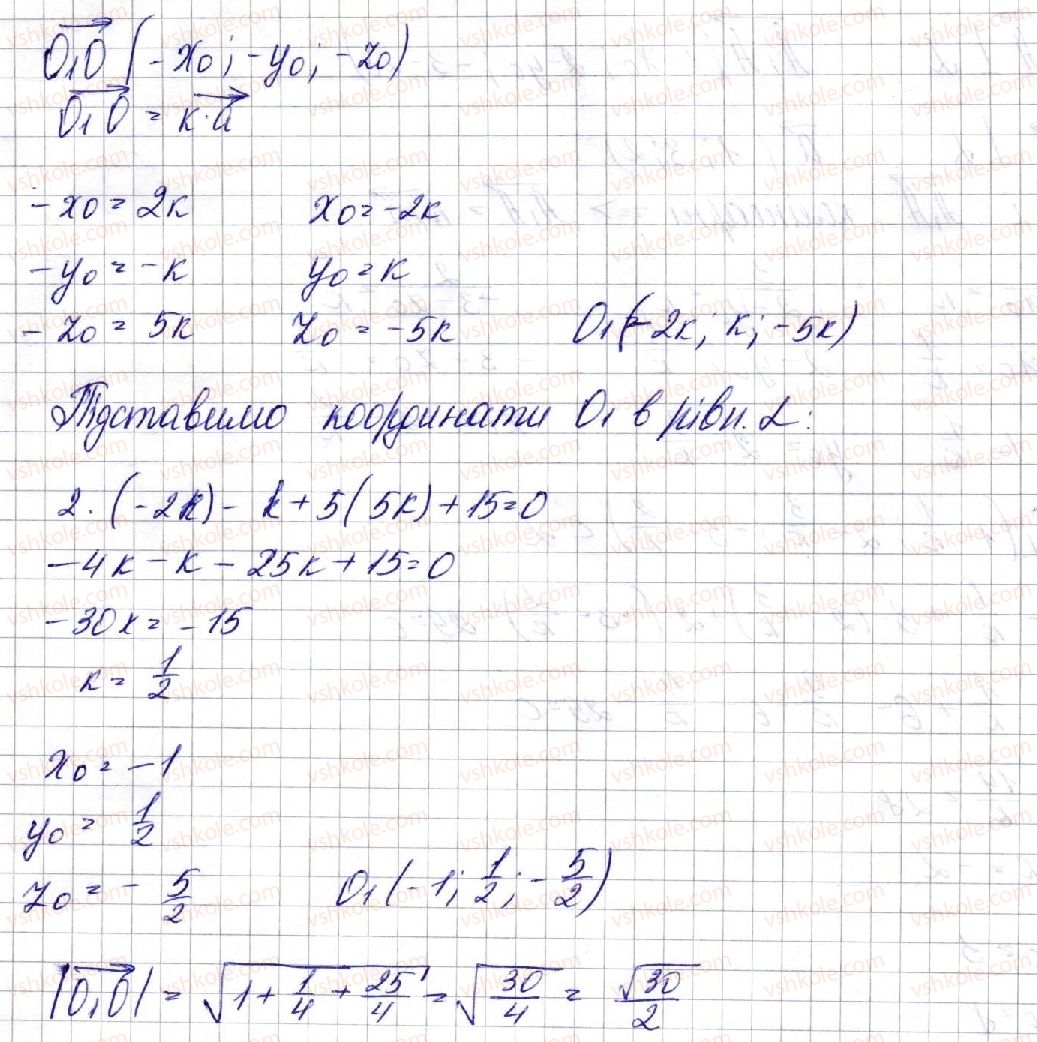 O₁O (-x₀; -y₀; -z₀)
O₁O = к·a
-x₀ = 2к x₀ = -2к
-y₀ = -к y₀ = к
-z₀ = 5к z₀ = -5к O₁(-2к; к; -5к)
Підставимо координати O₁ в рівн. α:
2·(-2к) - к + 5(5к) + 15 = 0
-4к - к - 25к + 15 = 0
-30к = -15
к = 1/2
x₀ = -1
y₀ = 1/2
z₀ = -5/2 O₁(-1; 1/2; -5/2)
|O₁O| = √(1 + 1/4 + 25/4) = √(30/4) = √30/2